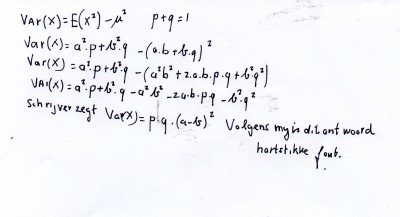 VAr(X)=E(x²)-μ² p+q=1
Var(X)=a².p+b².q -(a.b+b.q)²
Var(X)=a².p+b².q -(a²b²+2.a.b.p.q+b².q²)
VAr(X)=a².p+b².q -a²b² -2ab.p.q -b².q²
Schrijver zegt Var(X)=p.q.(a-b)² Volgens my is dit antwoord
hartstikke fout.